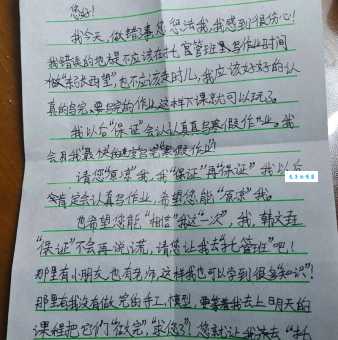 您好!
我今天,做错事您罚我,我感到很伤心!
我错误的地方不应该在托管班里写作业时间
做"东张西望",也不应该走时儿,我应该好好的认
真的写完,要写完的作业,这样下课就可以玩了。
我以后"保证"会认认真真写寒假作"业。我
会用我最快的速度写完"寒假作业"!
请您"原谅"我,我"保证"再"保证"我以后
肯定会认真写作业,希望您能"原谅"我。
也希望您能"相信"我这"一次",我,韩文
"保证"不会再说谎,请您让我去"托管班"吧!
那里有小朋友,也有老师,这样我也可以学到很多"知识"!
那里有我没有做完的手工,模型,要等着我去上明天的
课程把它们"做完",求您了?您就让我去"托